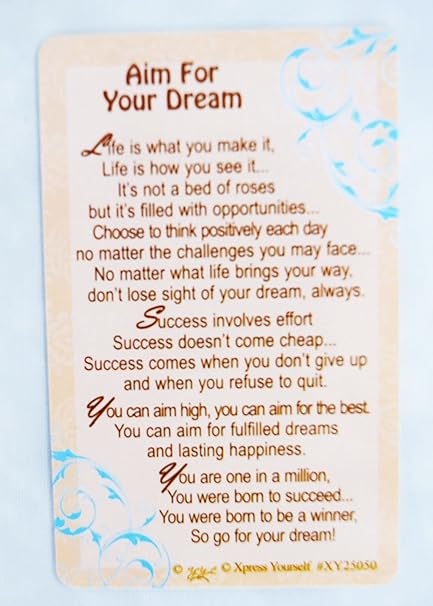 Aim For
Your Dream
Life is what you make it,
Life is how you see it...
It's not a bed of roses
but it's filled with opportunities...
Choose to think positively each day
no matter the challenges you may face...
No matter what life brings your way,
don't lose sight of your dream, always.
Success involves effort
Success doesn't come cheap...
Success comes when you don't give up
and when you refuse to quit.
You can aim high, you can aim for the best.
You can aim for fulfilled dreams
and lasting happiness.
You are one in a million,
You were born to succeed...
You were born to be a winner,
So go for your dream!
© © Xpress Yourself #XY25050